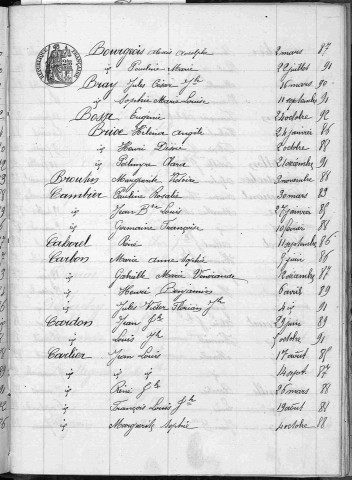 Bourgeois Louis Adolphe 2 mars 87
ij Pauline Marie 22 juillet 91
Bray Jules César Jh 16 mars 90
ij Sophie Marie Louise 11 septembre 91
Bosse Eugénie 24 octobre 92
Brice Angèle 24 janvier 86
ij Henri Désiré 2 octobre 88
ij Palmyre 21 décembre 91
Broutin Marguerite Victoire 3 novembre 88
Cambier Pauline Rosalie 30 mars 89
ij Jean Bte Louis 27 janvier 85
ij Germaine Françoise 10 février 88
René 11 septembre 86
Carbon Marie Anne Sophie 9 juin 86
ij Gabrielle Marie 87
ij Henri Benjamin 6 avril 89
ij Jules Victor Florian Jh 4 ij 91
Cardon Jean Bte 29 juin 89
ij Louis Jh octobre 91
Cartier Jean Louis 17 août 85
ij ij ij 14 sept. 87
ij René Jh 26 mars 88
ij François Louis Jh 19 août 88
ij Marguerite Sophie 4 octobre 88